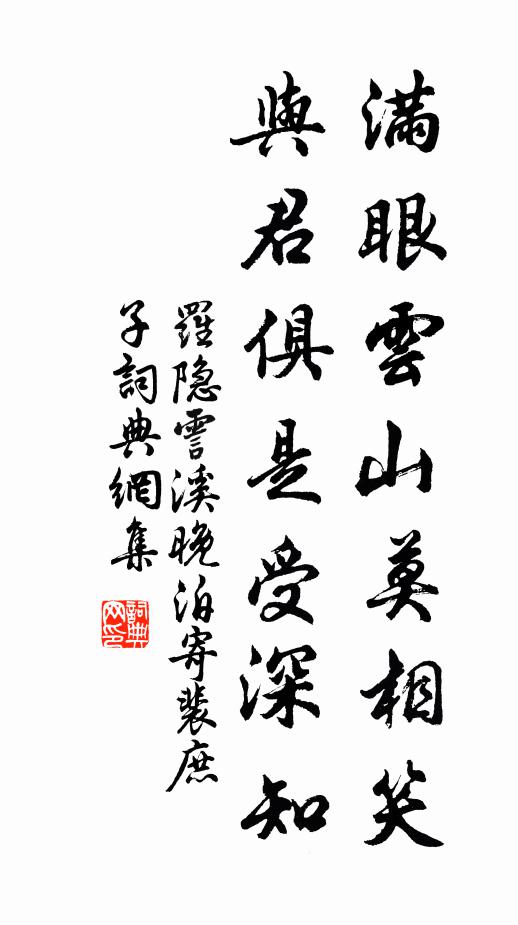 滿眼雲山莫相笑
與君俱是受深知
羅隱霅溪晚泊寄裴庶
子詞典網集
詞典
网印